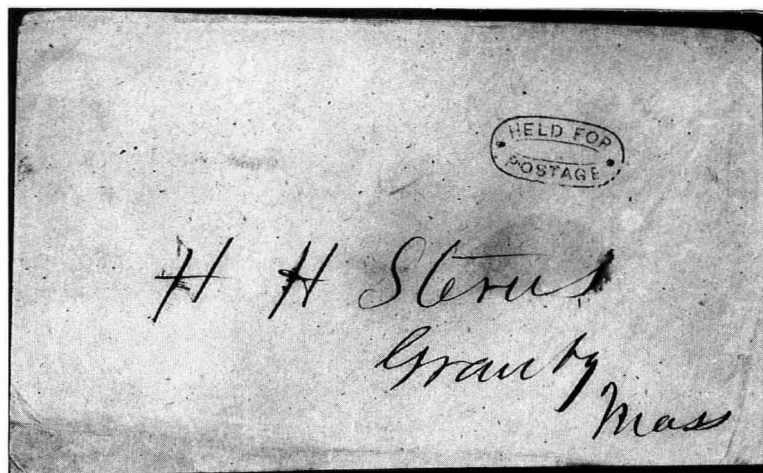 HELD FOR
POSTAGE
H H Sterns
Granby
Mass